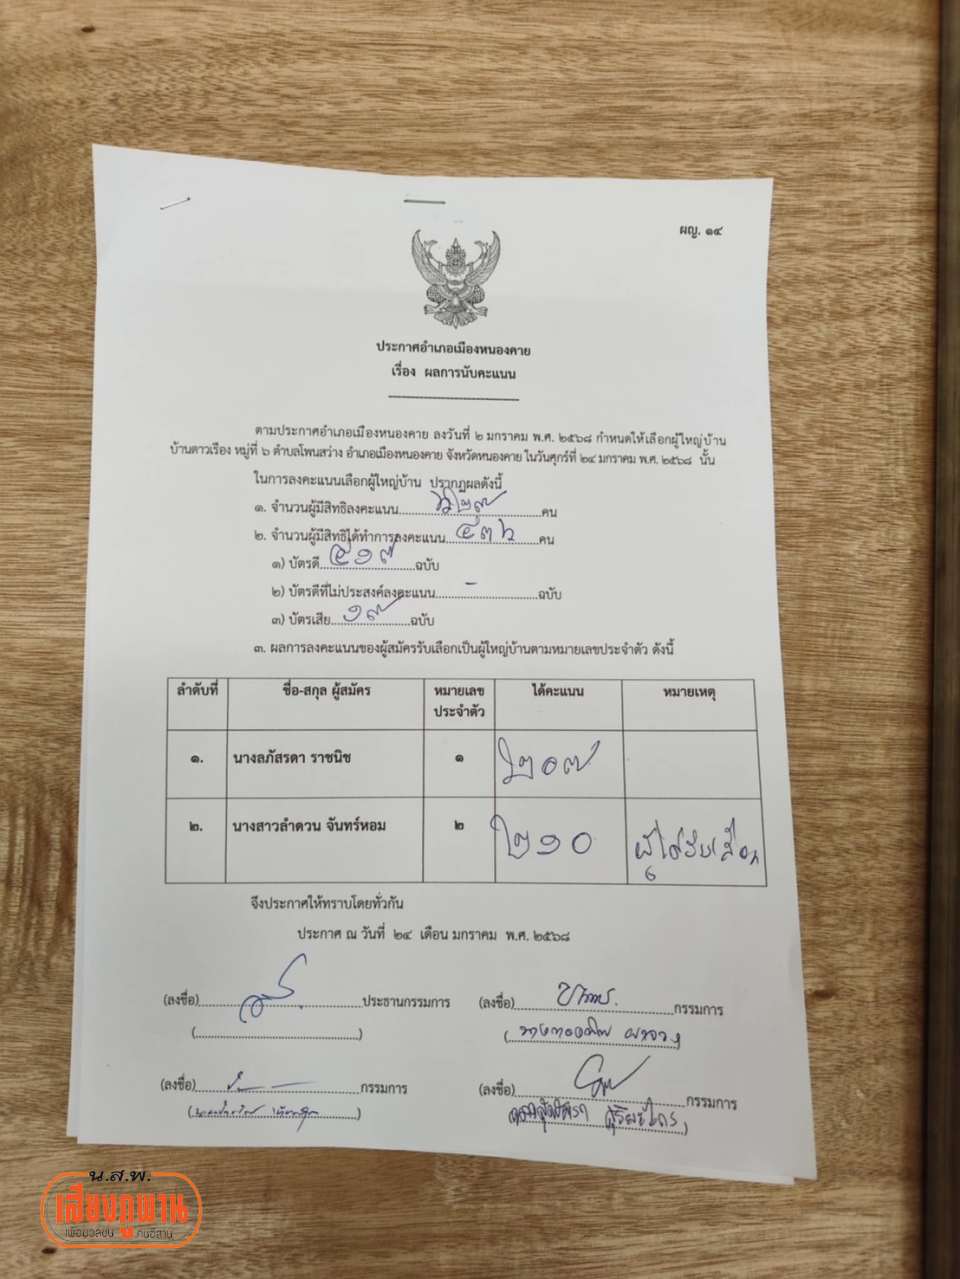 ผญ. ๑๔
ประกาศอำเภอเมืองหนองคาย
เรื่อง ผลการนับคะแนน
ตามประกาศอำเภอเมืองหนองคาย ลงวันที่ ๒ มกราคม พ.ศ. ๒๕๖๘ กำหนดให้เลือกผู้ใหญ่บ้าน
บ้านดาวเรือง หมู่ที่ ๖ ตำบลโพนสว่าง อำเภอเมืองหนองคาย จังหวัดหนองคาย ในวันศุกร์ที่ ๒๔ มกราคม พ.ศ. ๒๕๖๘ นั้น
ในการลงคะแนนเลือกผู้ใหญ่บ้าน ปรากฏผลดังนี้
๑. จำนวนผู้มีสิทธิลงคะแนน คน
๒. จำนวนผู้มีสิทธิได้ทำการลงคะแนน ๔๓๖ คน
๑) บัตรดี ๔๑๗ ฉบับ
๒) บัตรดีที่ไม่ประสงค์ลงคะแนน - ฉบับ
๓) บัตรเสีย ๑๙ ฉบับ
๓. ผลการลงคะแนนของผู้สมัครรับเลือกเป็นผู้ใหญ่บ้านตามหมายเลขประจำตัว ดังนี้
ลำดับที่ ชื่อ-สกุล ผู้สมัคร หมายเลข ได้คะแนน หมายเหตุ
ประจำตัว
๑. นางลภัสรดา ราชนิช ๑ ๒๐๗
๒. นางสาวลำดวน จันทร์หอม ๒ ๒๑๐ ผู้ได้รับเลือก
จึงประกาศให้ทราบโดยทั่วกัน
ประกาศ ณ วันที่ ๒๔ เดือน มกราคม พ.ศ. ๒๕๖๘
(ลงชื่อ) ประธานกรรมการ (ลงชื่อ) กรรมการ
(ลงชื่อ) กรรมการ (ลงชื่อ) กรรมการ
น.ส.พ.
เสียงภูพาน
เพื่อมวลชน คนอีสาน